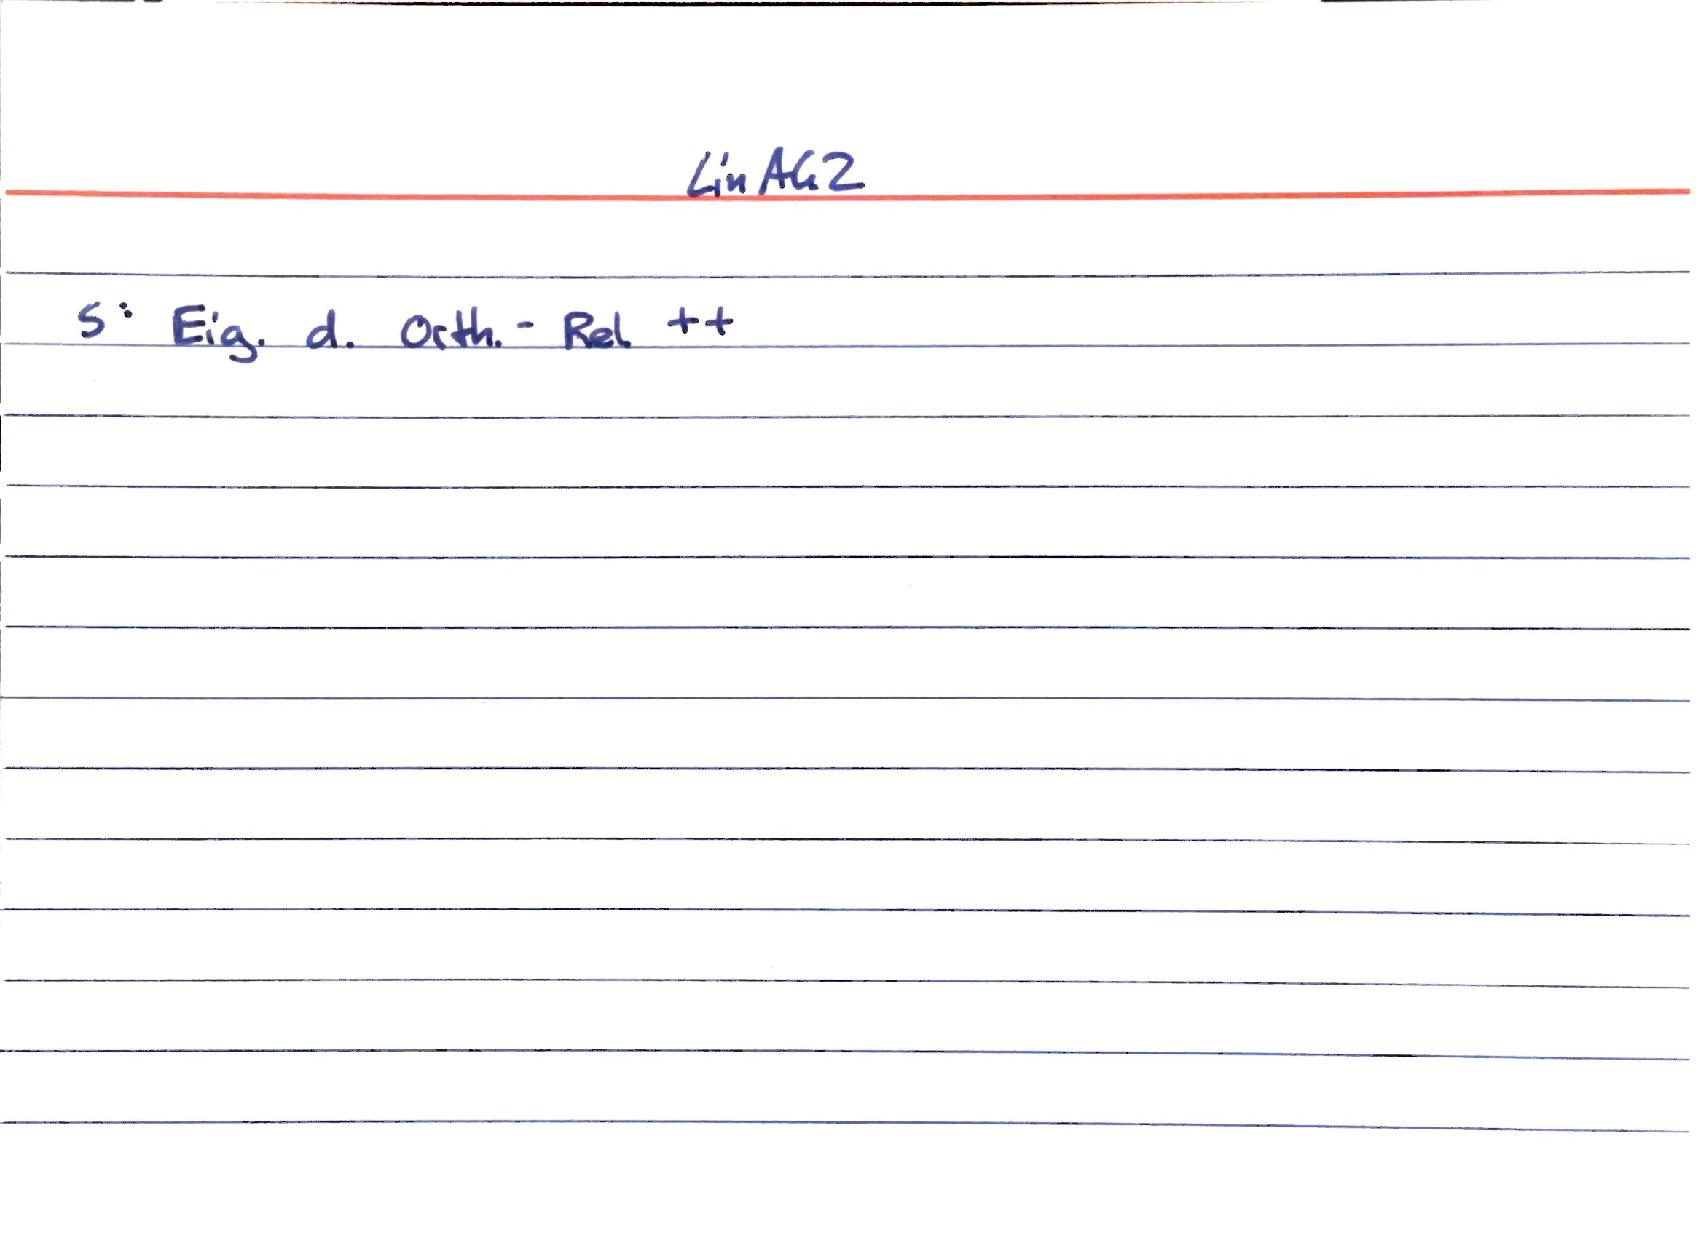 LinAG2
S: Eig. d. Orth.- Rel ++